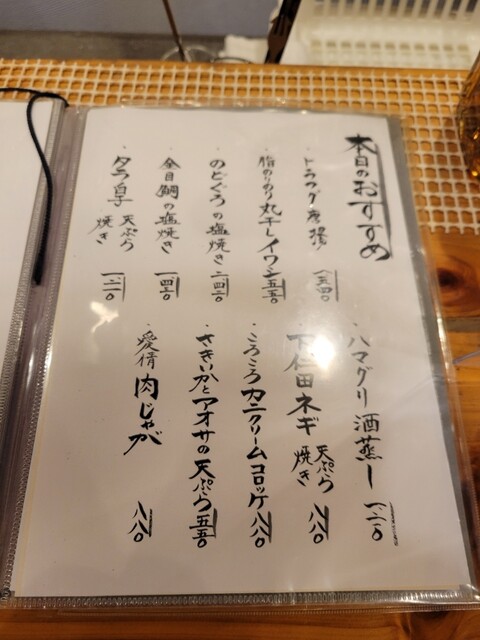 本日のおすすめ
・トラフグ唐揚げ 一、五四〇
・脂のりのり丸干しイワシ 五五〇
・のどぐろの塩焼き 二、四二〇
・金目鯛の塩焼き
・タラ白子 天ぷら
焼き 一、二一〇
・ハマグリ酒蒸し 一、二一〇
・下仁田ネギ 天ぷら
焼き 八八〇
・ころころカニクリームコロッケ 八八〇
・さきいかとアオサの天ぷら 五五〇
・愛情 肉じゃが 八八〇